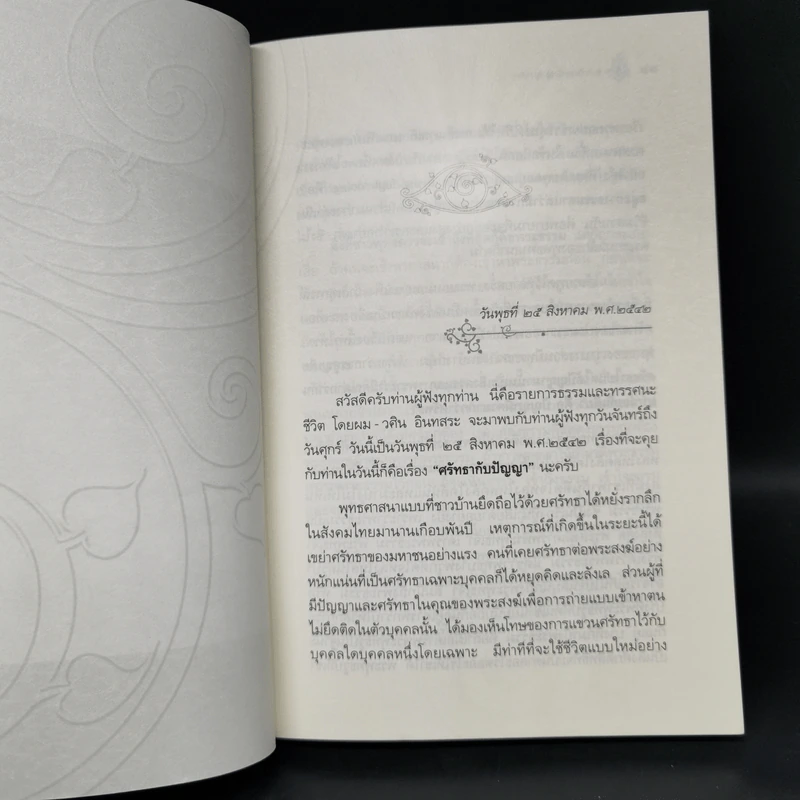 วันพุธที่ ๒๕ สิงหาคม พ.ศ.๒๕๔๒
สวัสดีครับท่านผู้ฟังทุกท่าน นี่คือรายการธรรมและทรรศนะ
ชีวิต โดยผม - วศิน อินทสระ จะมาพบกับท่านผู้ฟังทุกวันจันทร์ถึง
วันศุกร์ วันนี้เป็นวันพุธที่ ๒๕ สิงหาคม พ.ศ.๒๕๔๒ เรื่องที่จะคุย
กับท่านในวันนี้ก็คือเรื่อง “ศรัทธากับปัญญา” นะครับ
พุทธศาสนาแบบที่ชาวบ้านยึดถือไว้ด้วยศรัทธาได้หยั่งรากลึก
ในสังคมไทยมานานเกือบพันปี เหตุการณ์ที่เกิดขึ้นในระยะนี้ได้
เขย่าศรัทธาของมหาชนอย่างแรง คนที่เคยศรัทธาต่อพระสงฆ์อย่าง
หนักแน่นที่เป็นศรัทธาเฉพาะบุคคลก็ได้หยุดคิดและลังเล ส่วนผู้ที่
มีปัญญาและศรัทธาในคุณของพระสงฆ์เพื่อการถ่ายแบบเข้าหาตน
ไม่ยึดติดในตัวบุคคลนั้น ได้มองเห็นโทษของการแขวนศรัทธาไว้กับ
บุคคลใดบุคคลหนึ่งโดยเฉพาะ มีท่าทีที่จะใช้ชีวิตแบบใหม่อย่าง